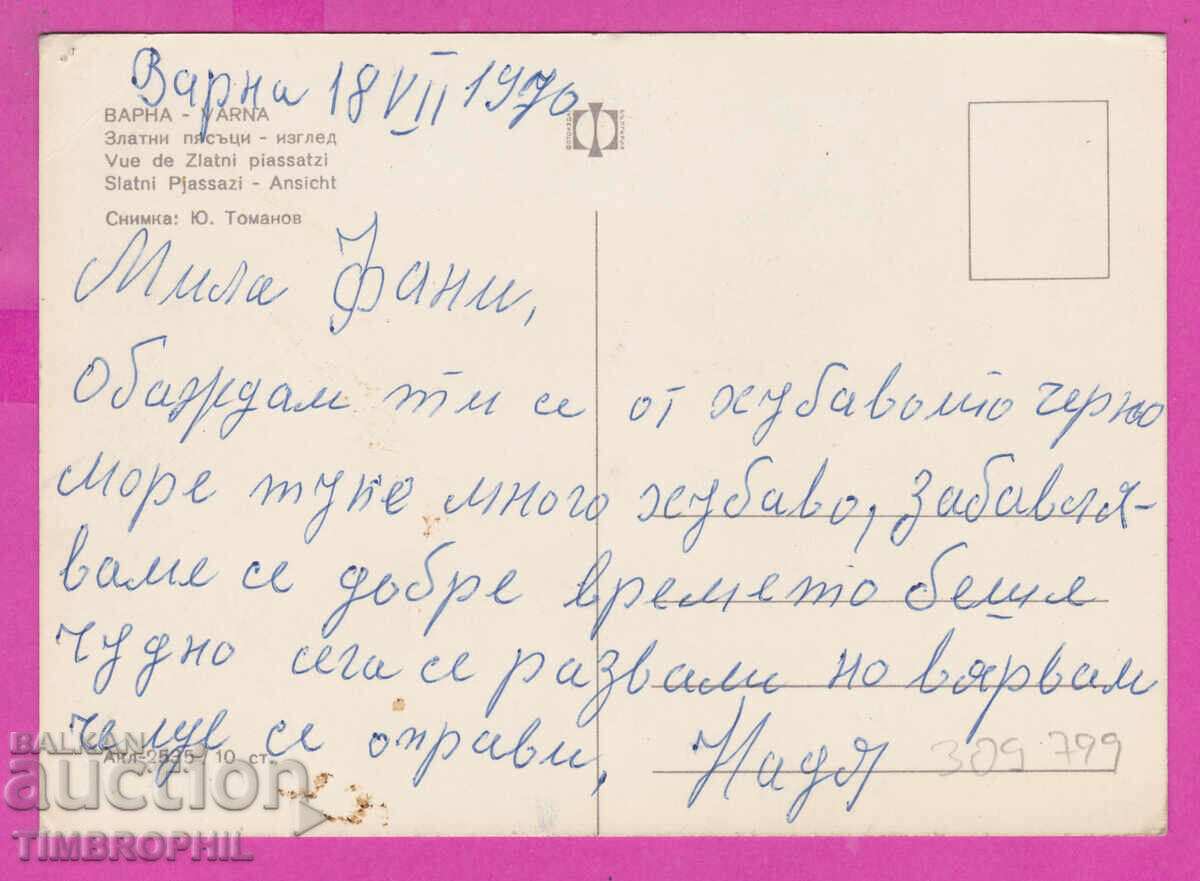 Варна 18 VII 1970
ВАРНА - VARNA
Златни пясъци - изглед
Vue de Zlatni piassatzi
Slatni Pjassazi - Ansicht
Снимка: Ю. Томанов
ФОТОИЗДАТ
БЪЛГАРИЯ
Мила Фани,
Обаждам ти се от хубавото черно
море туке много хубаво, забавля-
ваме се добре времето беше
чудно сега се развали но вярвам
че ще се оправи, Надя
Акл-2535 / 10 ст.
309 799
BALKAN
auction
TIMBROPHIL